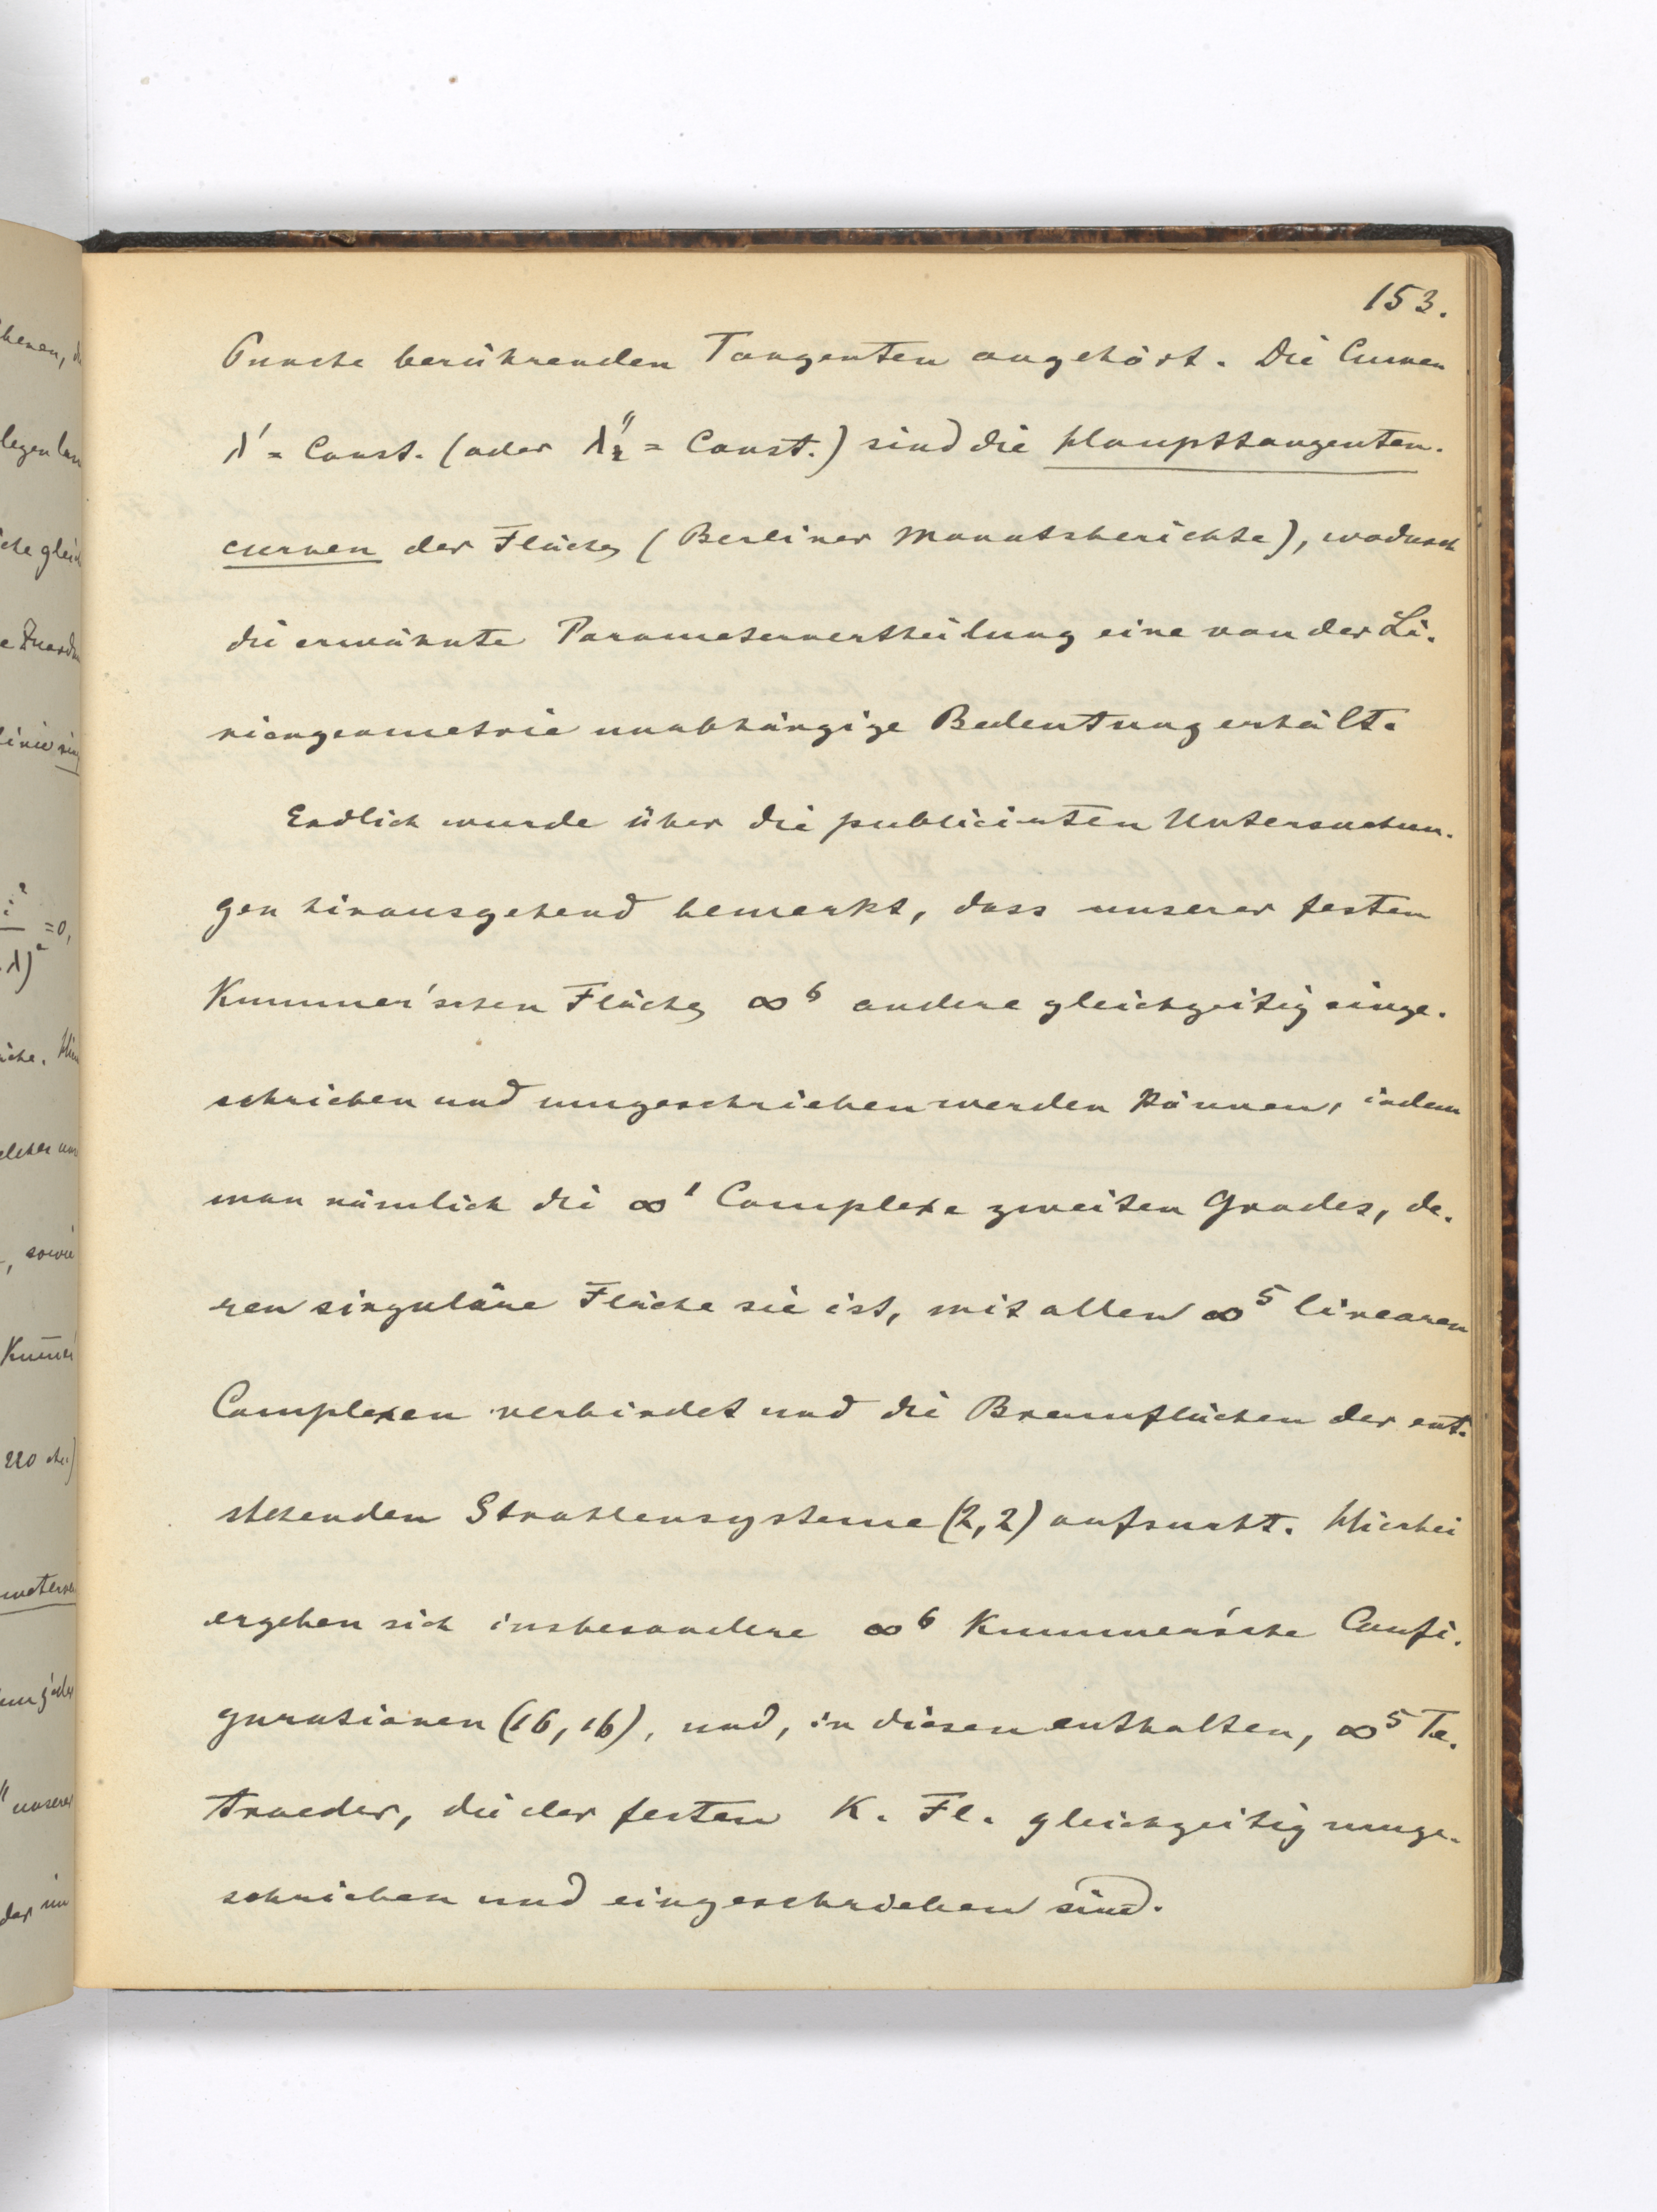 153.
Puncte berührenden Tangenten angehört. Die Curven
λ' = Const. (oder λ'' = Const.) sind die Haupttangenten-
curven der Fläche (Berliner Monatsberichte), wodurch
die erwähnte Parametervertheilung eine von der Li-
niengeometrie unabhängige Bedeutung erhält.
Endlich wurde über die publicirten Untersuchun-
gen hinausgehend bemerkt, dass unserer festen
Kummer'schen Fläche ∞⁶ andere gleichzeitig einge-
schrieben und umgeschrieben werden können, indem
man nämlich die ∞¹ Complexe zweiten Grades, de-
ren singuläre Fläche sie ist, mit allen ∞⁵ linearen
Complexen verbindet und die Brennflächen der ent-
stehenden Strahlensysteme (2,2) aufsucht. Hierbei
ergeben sich insbesondere ∞⁶ Kummer'sche Confi-
gurationen (16,16), und, in diesen enthalten, ∞⁵ Te-
traeder, die der festen K. Fl. gleichzeitig umge-
schrieben und eingeschrieben sind.